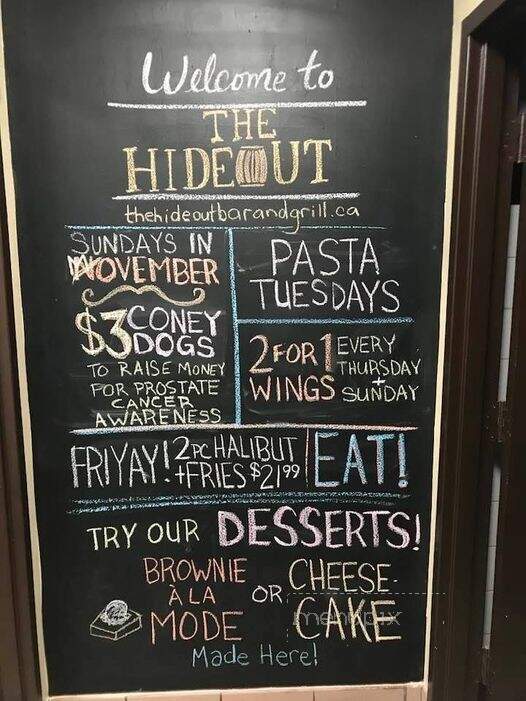 Welcome to
THE
HIDEOUT
thehideoutbarandgrill.ca
SUNDAYS IN
MOVEMBER
$3 CONEY
DOGS
TO RAISE MONEY
FOR PROSTATE
CANCER
AWARENESS
PASTA
TUESDAYS
2 FOR 1
WINGS
EVERY
THURSDAY
+
SUNDAY
FRIYAY! 2PC HALIBUT
+FRIES $21⁹⁹
EAT!
TRY OUR DESSERTS!
BROWNIE
À LA
MODE
OR
CHEESE-
CAKE
Made Here!
menupix